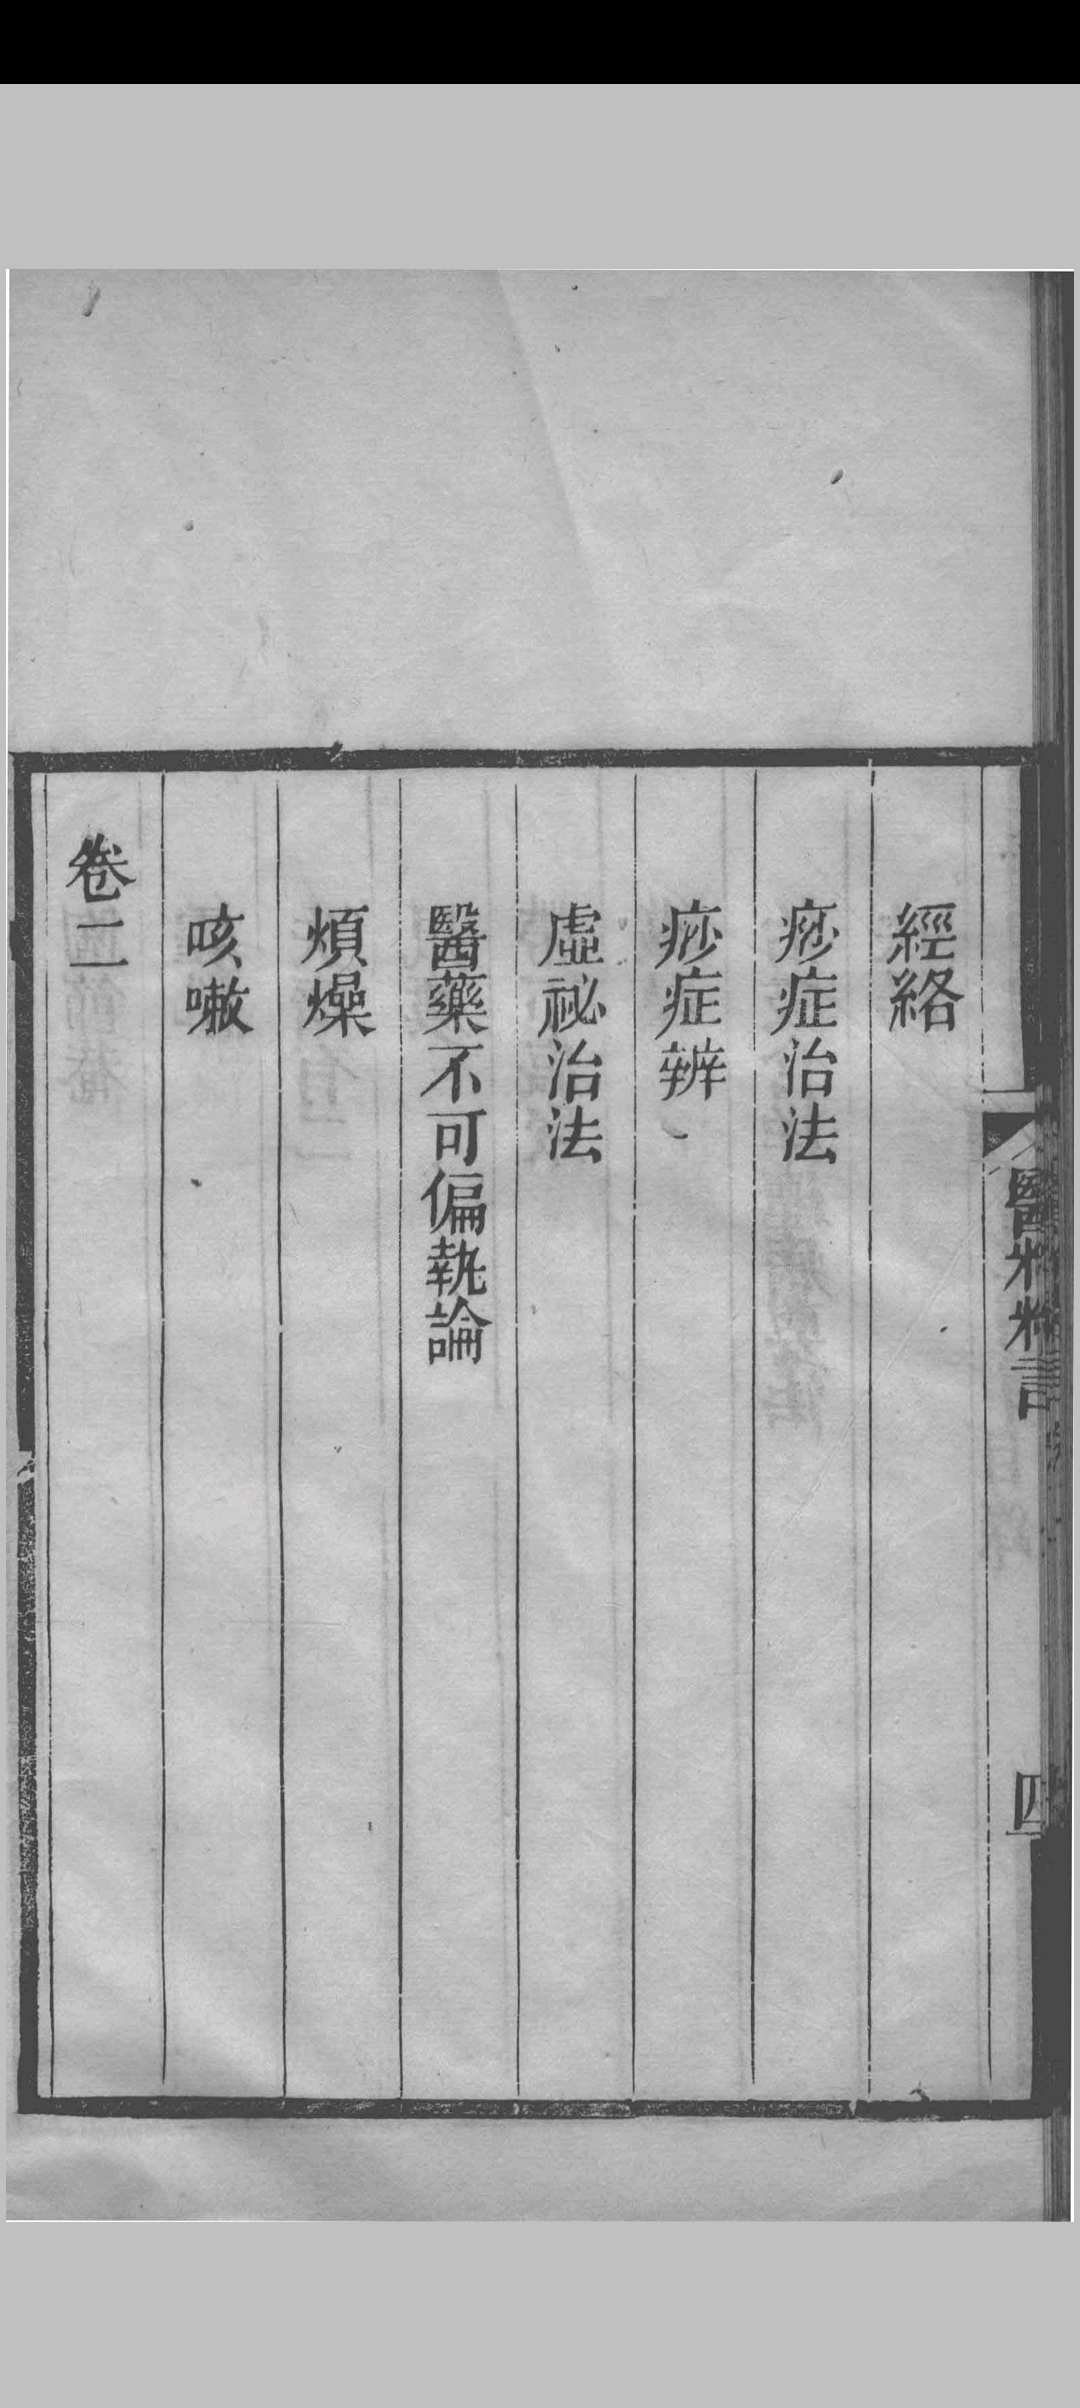 經絡
痧症治法
痧症辨
虛祕治法
醫藥不可偏執論
煩燥
咳嗽
卷二
醫粹精言
四